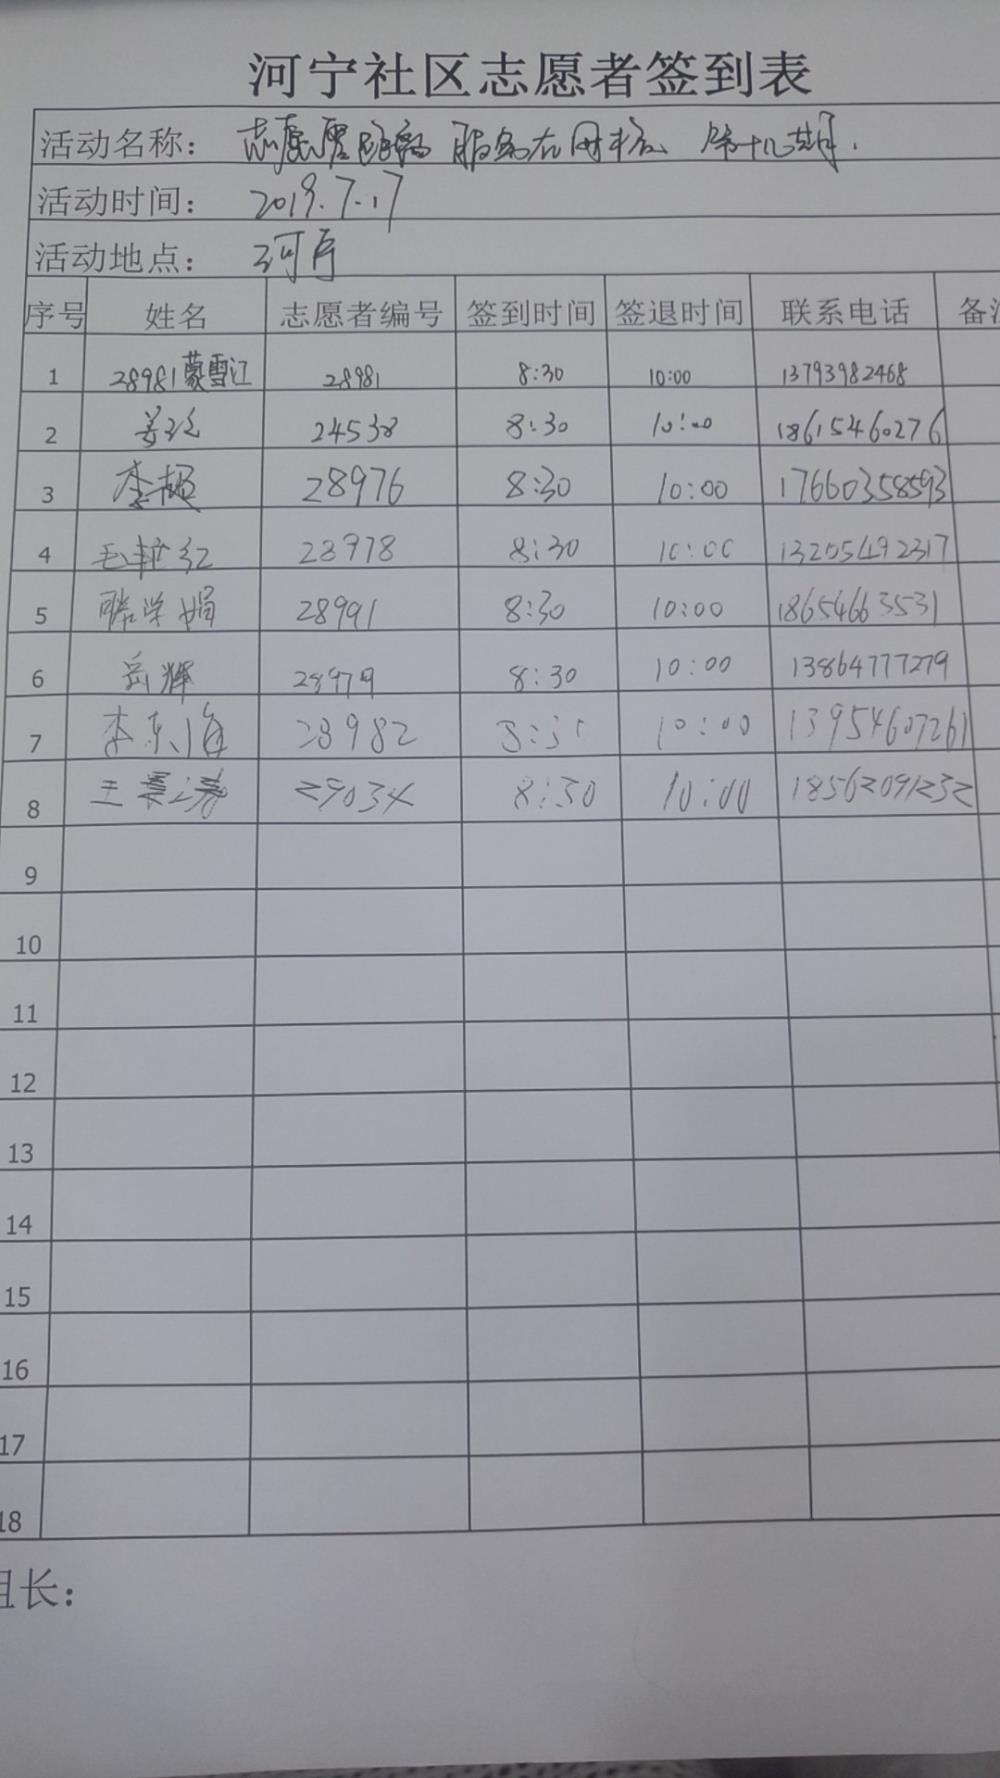 河宁社区志愿者签到表
活动名称： 志愿 服务在 第十 期.
活动时间： 2019.7.17
活动地点： 河宁
序号 姓名 志愿者编号 签到时间 签退时间 联系电话 备注
1 28981蒙雪江 28981 8:30 10:00 13793982468
2 姜 24538 8:30 10:00 18615460276
3 李 28976 8:30 10:00 17660358593
4 毛艳红 28978 8:30 10:00 13205492317
5 滕学娟 28991 8:30 10:00 18654663531
6 岳辉 28979 8:30 10:00 13864777279
7 李东海 28982 8:30 10:00 13954607261
8 王 29034 8:30 10:00 18562091232
9
10
11
12
13
14
15
16
17
18
组长：